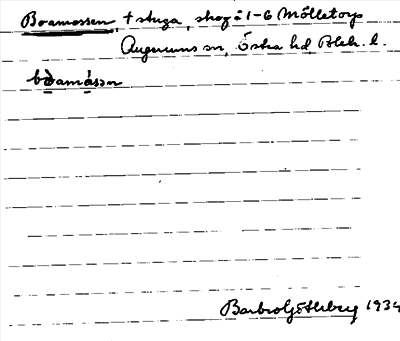 Boamossen, † stuga, skog å 1-6 Mölletorp
Augerums sn, Östra hd, Blek. l.
bòamåssn
Barbro Götleberg 1934